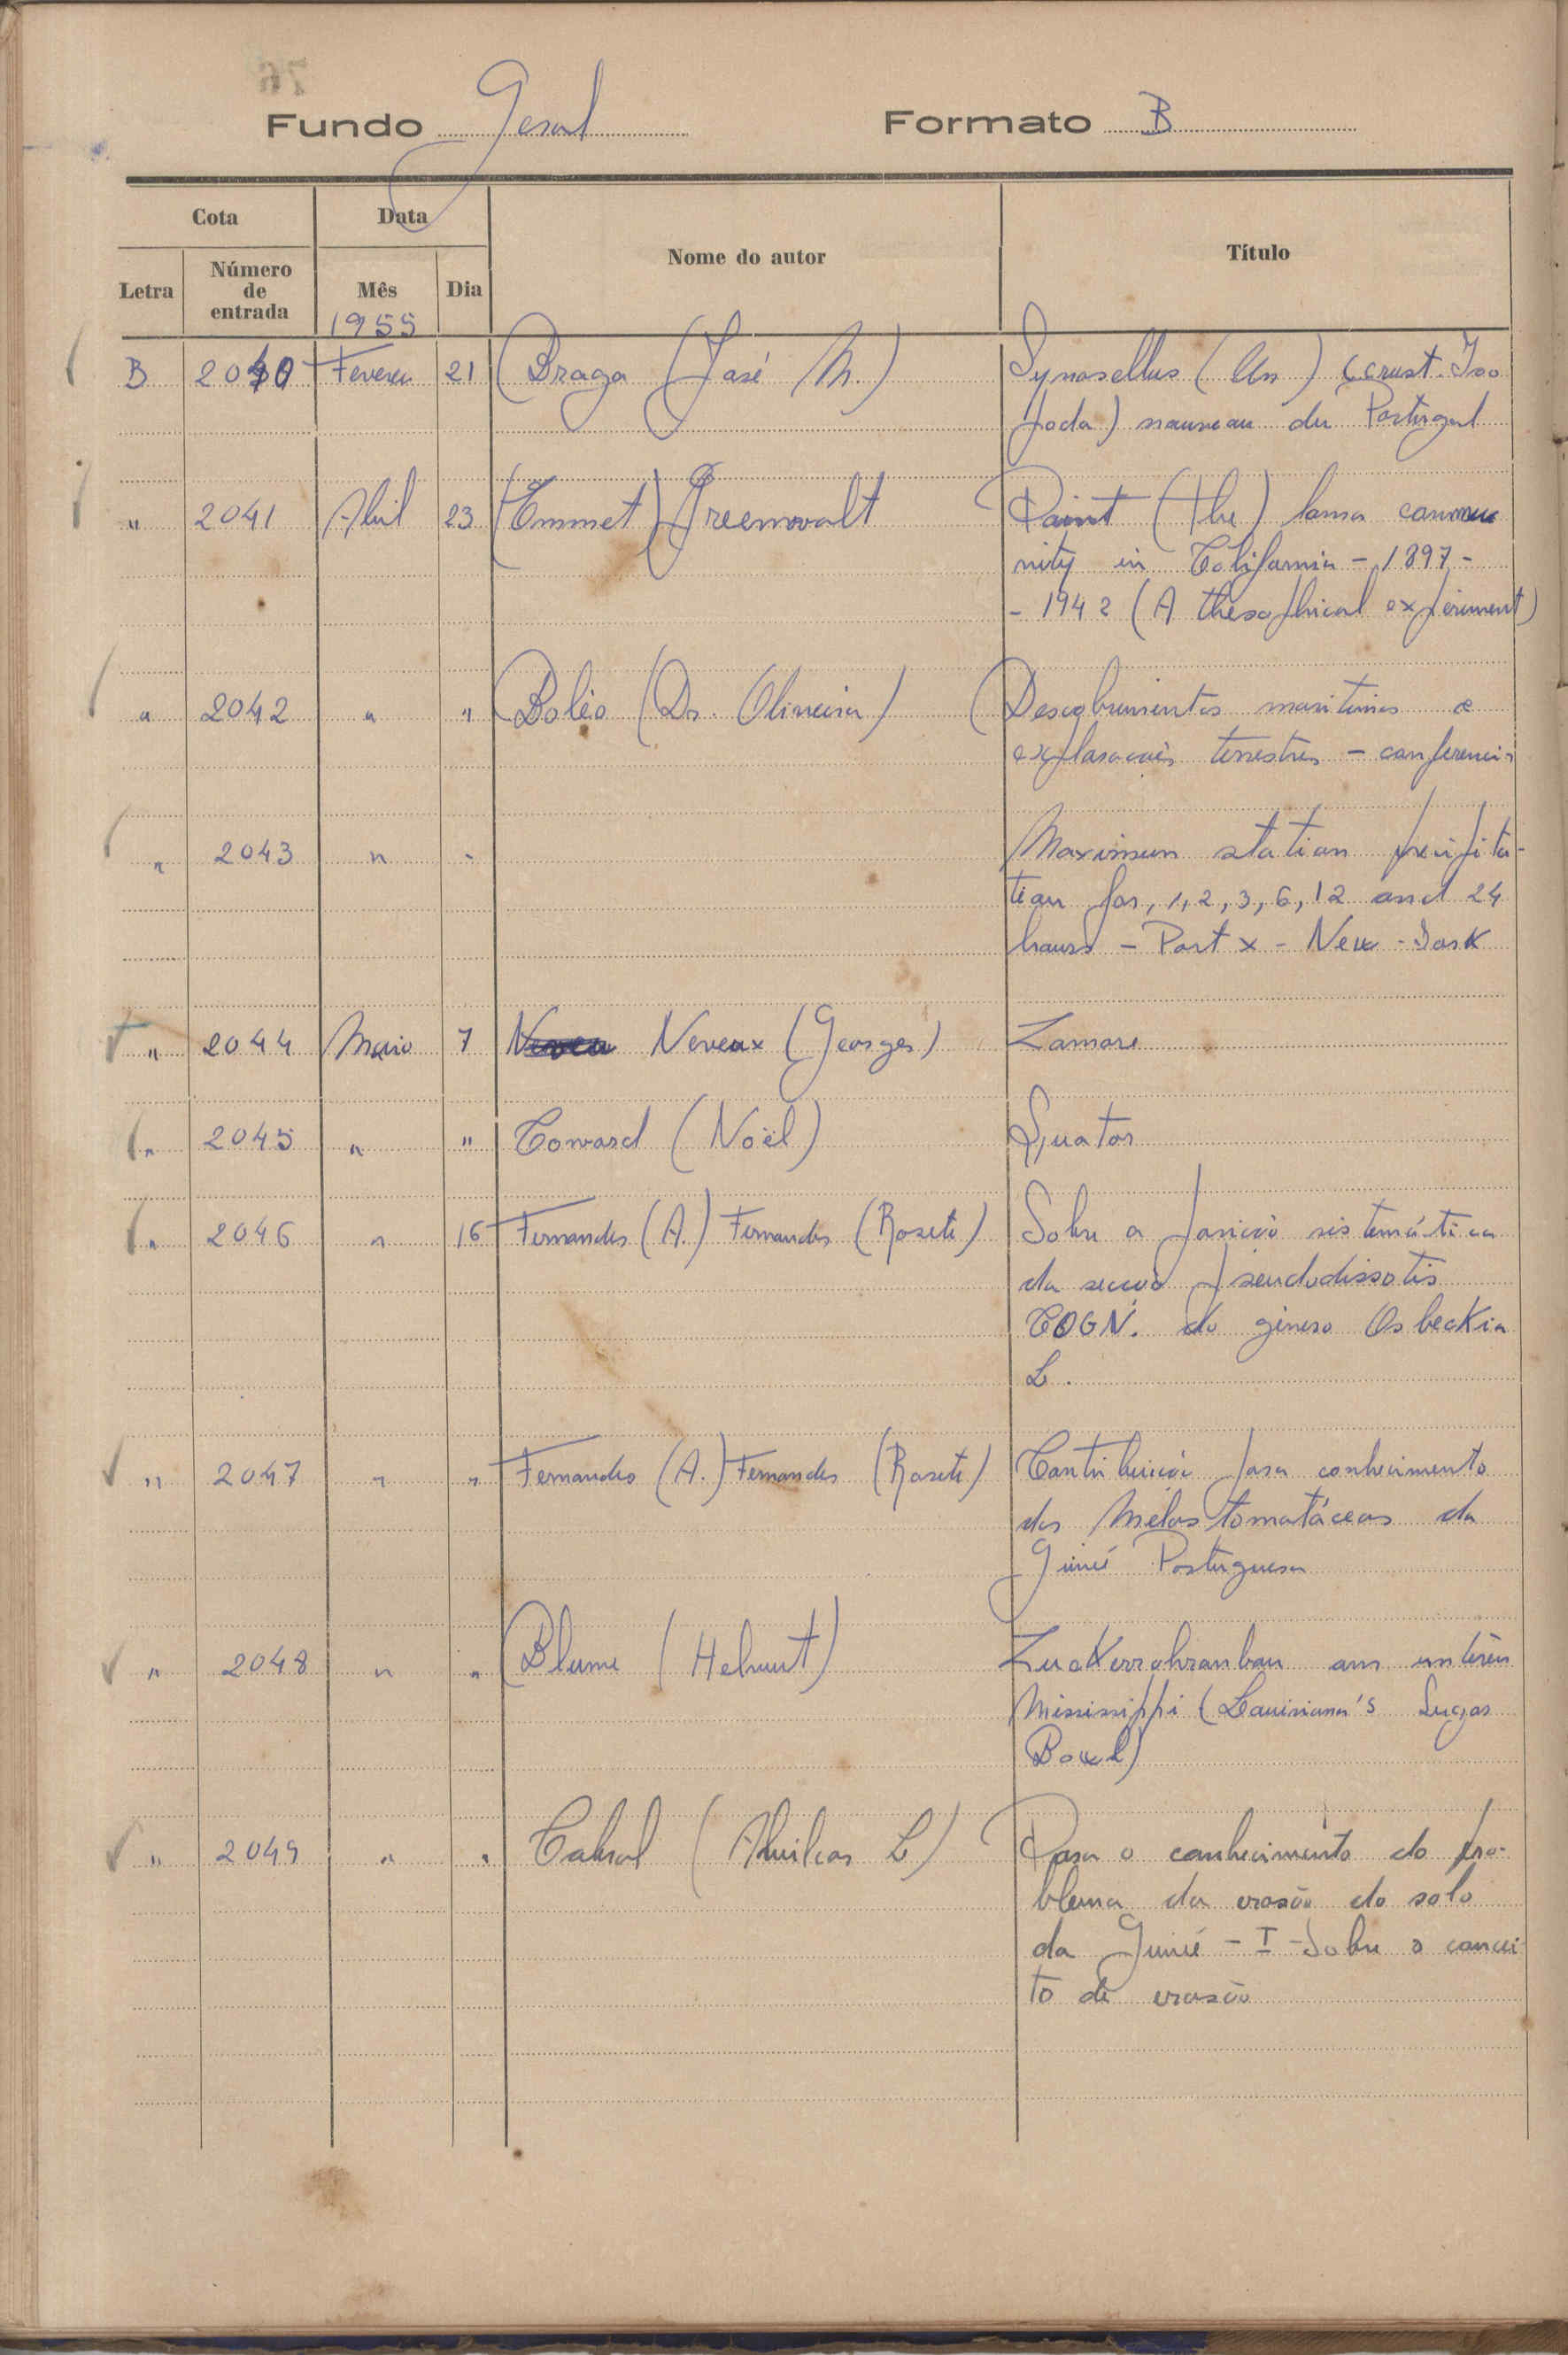 Fundo Geral Formato B
Cota Data Nome do autor Título
Letra Número de entrada Mês Dia
1955
B 2040 Fevereiro 21 Braga (José M.) Synasellus (Un) (crust. Iso
poda) nouveau du Portugal
" 2041 Abril 23 (Emmet) Greenwalt Point (the) loma commu
nity in California - 1897 -
- 1942 (A theosophical experiment)
" 2042 " " Boléo (Dr. Oliveira) Descobrimentos maritimos e
explorações terrestres - conferencia
" 2043 " " Maximum station precipita-
tion for, 1, 2, 3, 6, 12 and 24
hours - Part X - New - York
" 2044 Maio 7 Neveux (Georges) Zamore
" 2045 " " Coward (Noël)
" 2046 " 16 Fernandes (A.) Fernandes (Rosete) Sobre a posição sistemática
da secção pseudodissotis
COGN. do género Osbeckia
L.
" 2047 " " Fernandes (A.) Fernandes (Rosete) Contribuição para conhecimento
das Melastomatáceas da
Guiné Portuguesa
" 2048 " " Blume (Helmut) Zuckerrohranbau am unteren
Mississippi (Louisiana's Sugar
Bowl)
" 2049 " " Cabral (Amilcar L) Para o conhecimento do pro-
blema da erosão do solo
da Guiné - I - Sobre o concei
to de erosão